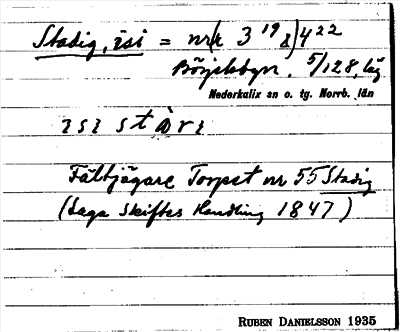 Stadig, isi = nrk 3 19 8/4 22
Börjelsbyn. 5/128, låg
Nederkalix sn o. tg. Norrb. län
ɪsɪ stàrɪ
Fältjägare Torpet nr 55 Stadig
(Laga Skiftes Handling 1847)
RUBEN DANIELSSON 1935